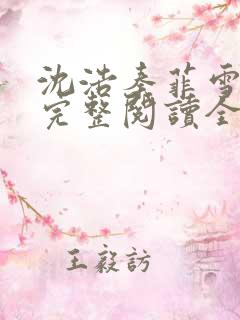 沈浩秦菲雪
完整閱讀全
王毅訪